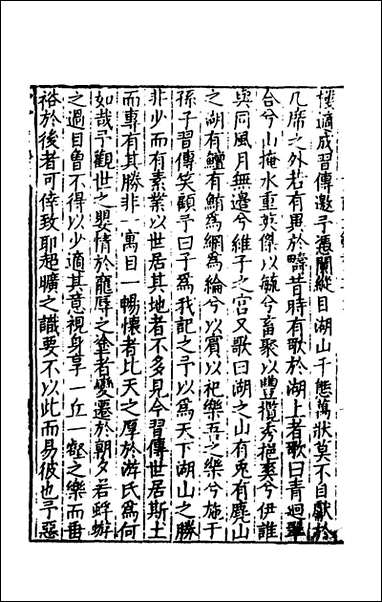 樓適成習傳邀予憑闌縱目湖山千態萬狀莫不自獻於
几席之外若有異於疇昔時有歌於湖上者歌曰青迴翠
合兮山掩水重英傑以毓兮畜聚以豐攬秀挹爽兮伊誰
與同風月無邊兮維子之宮又歌曰湖之山有兎有麂山
之湖有鱣有鮪為網為綸兮以賓以祀樂吾之樂兮施于
孫子習傳笑顧予曰子為我記之予以為天下湖山之勝
非少而有素業以世居其地者不多見今習傳世居斯土
而專有其勝非一寓目一暢懷者比天之厚於游氏為何
如哉予觀世之嬰情於寵辱之塗者變遷於朝夕若蜉蝣
之過目曽不得以少適其意視身享一丘一壑之樂而垂
裕於後者可倖致耶超曠之識要不以此而易彼也予惡